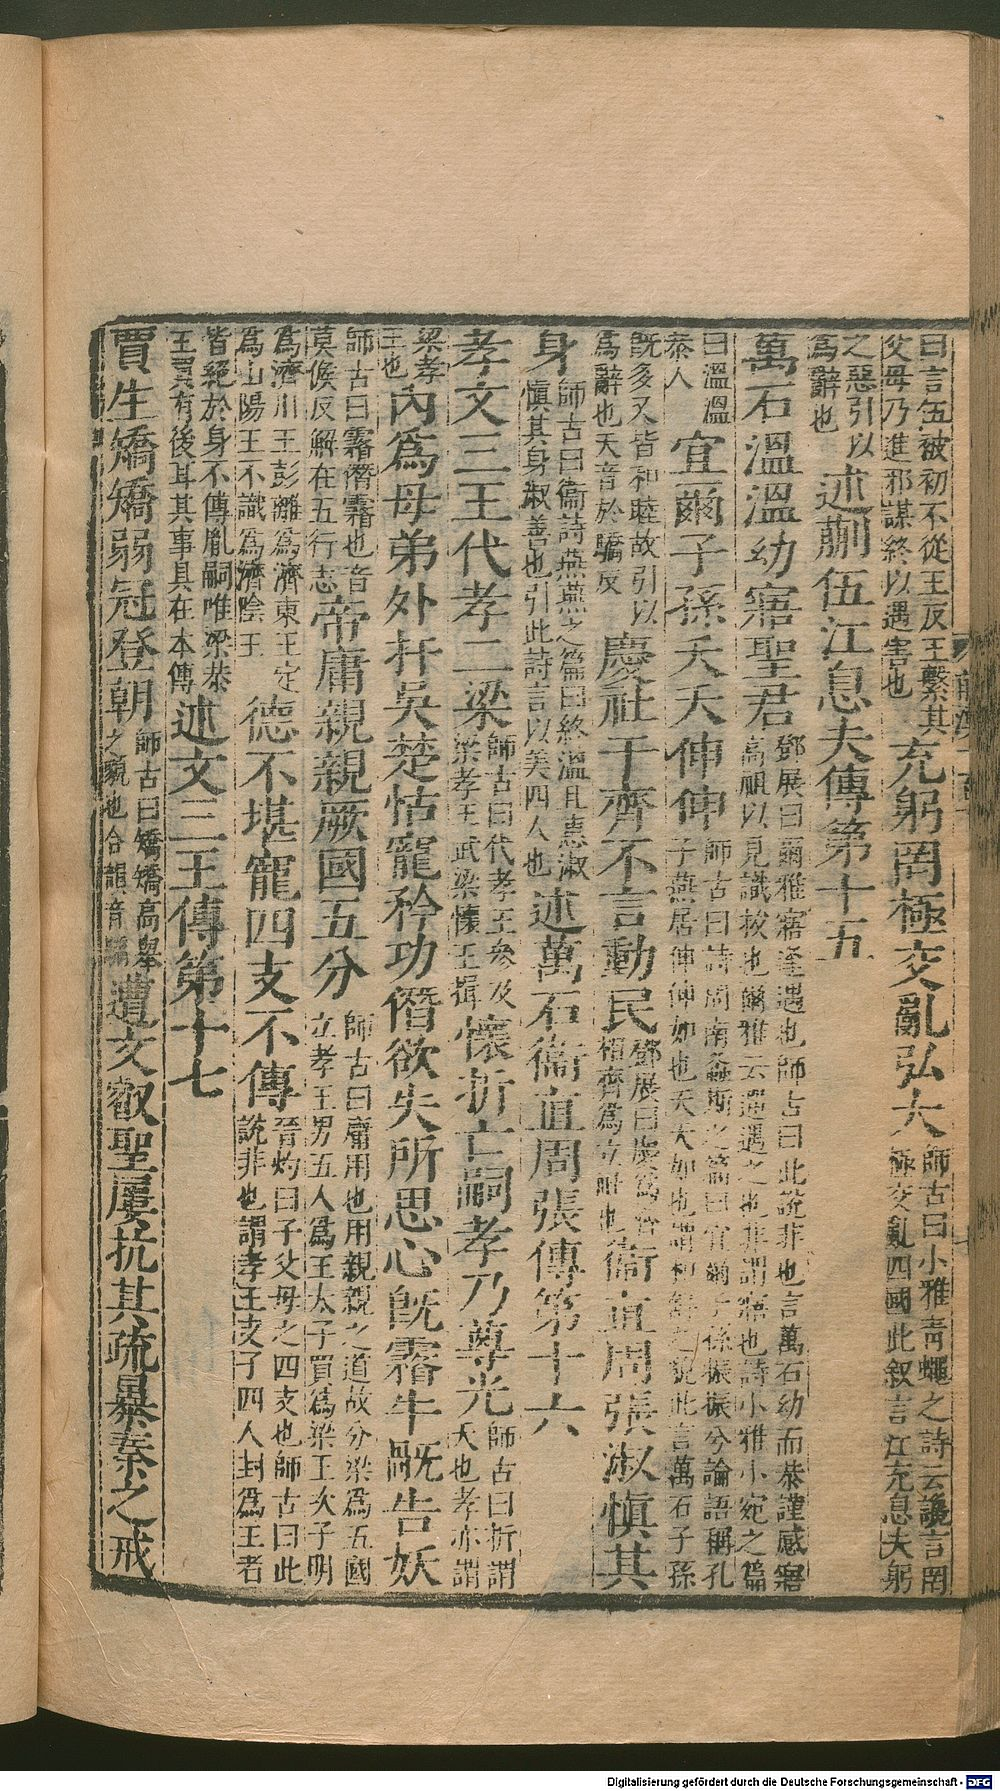 曰言伍被初不從王反王繫其
父母乃進邪謀終以遇害也充躬罔極交亂弘大師古曰小雅青蠅之詩云讒言罔
極交亂四國此叙言江充息夫躬
之惡引以
為辭也述蒯伍江息夫傳第十五
萬石溫溫幼寤聖君鄧展曰爾雅寤逢遇也師古曰此說非也言萬石幼而恭謹感寤
高祖以見識拔也爾雅云遻遇之也非謂寤也詩小雅小宛之篇
曰溫溫
恭人宜爾子孫夭夭伸伸師古曰詩周南螽斯之篇曰宜爾子孫振振兮論語稱孔
子燕居伸伸如也夭夭如也謂和舒之貌此言萬石子孫
既多又皆和睦故引以
為辭也夭音於驕反慶社于齊不言動民鄧展曰慶為
相齊為立社也衞直周張淑慎其
身師古曰衞詩燕燕之篇曰終溫且惠淑
慎其身淑善也引此詩言以美四人也述萬石衞直周張傳第十六
孝文三王代孝二梁師古曰代孝王參及
梁孝王武梁懷王揖懷折亡嗣孝乃尊光師古曰折謂
夭也孝亦謂
梁孝
王也內為母弟外扞吳楚怙寵矜功僭欲失所思心既霿牛旤告妖
師古曰霿僭霿也音
莫候反解在五行志帝庸親親厥國五分師古曰庸用也用親親之道故分梁為五國
立孝王男五人為王太子買為梁王次子明
為濟川王彭離為濟東王定
為山陽王不識為濟陰王德不堪寵四支不傳晉灼曰子父母之四支也師古曰此
說非也謂孝王支子四人封為王者
皆絕於身不傳胤嗣唯梁恭
王買有後耳其事具在本傳述文三王傳第十七
賈生矯矯弱冠登朝師古曰矯矯高舉
之貌也合韻音驕遭文叡聖屢抗其疏暴秦之戒
Digitalisierung gefördert durch die Deutsche Forschungsgemeinschaft - DFG